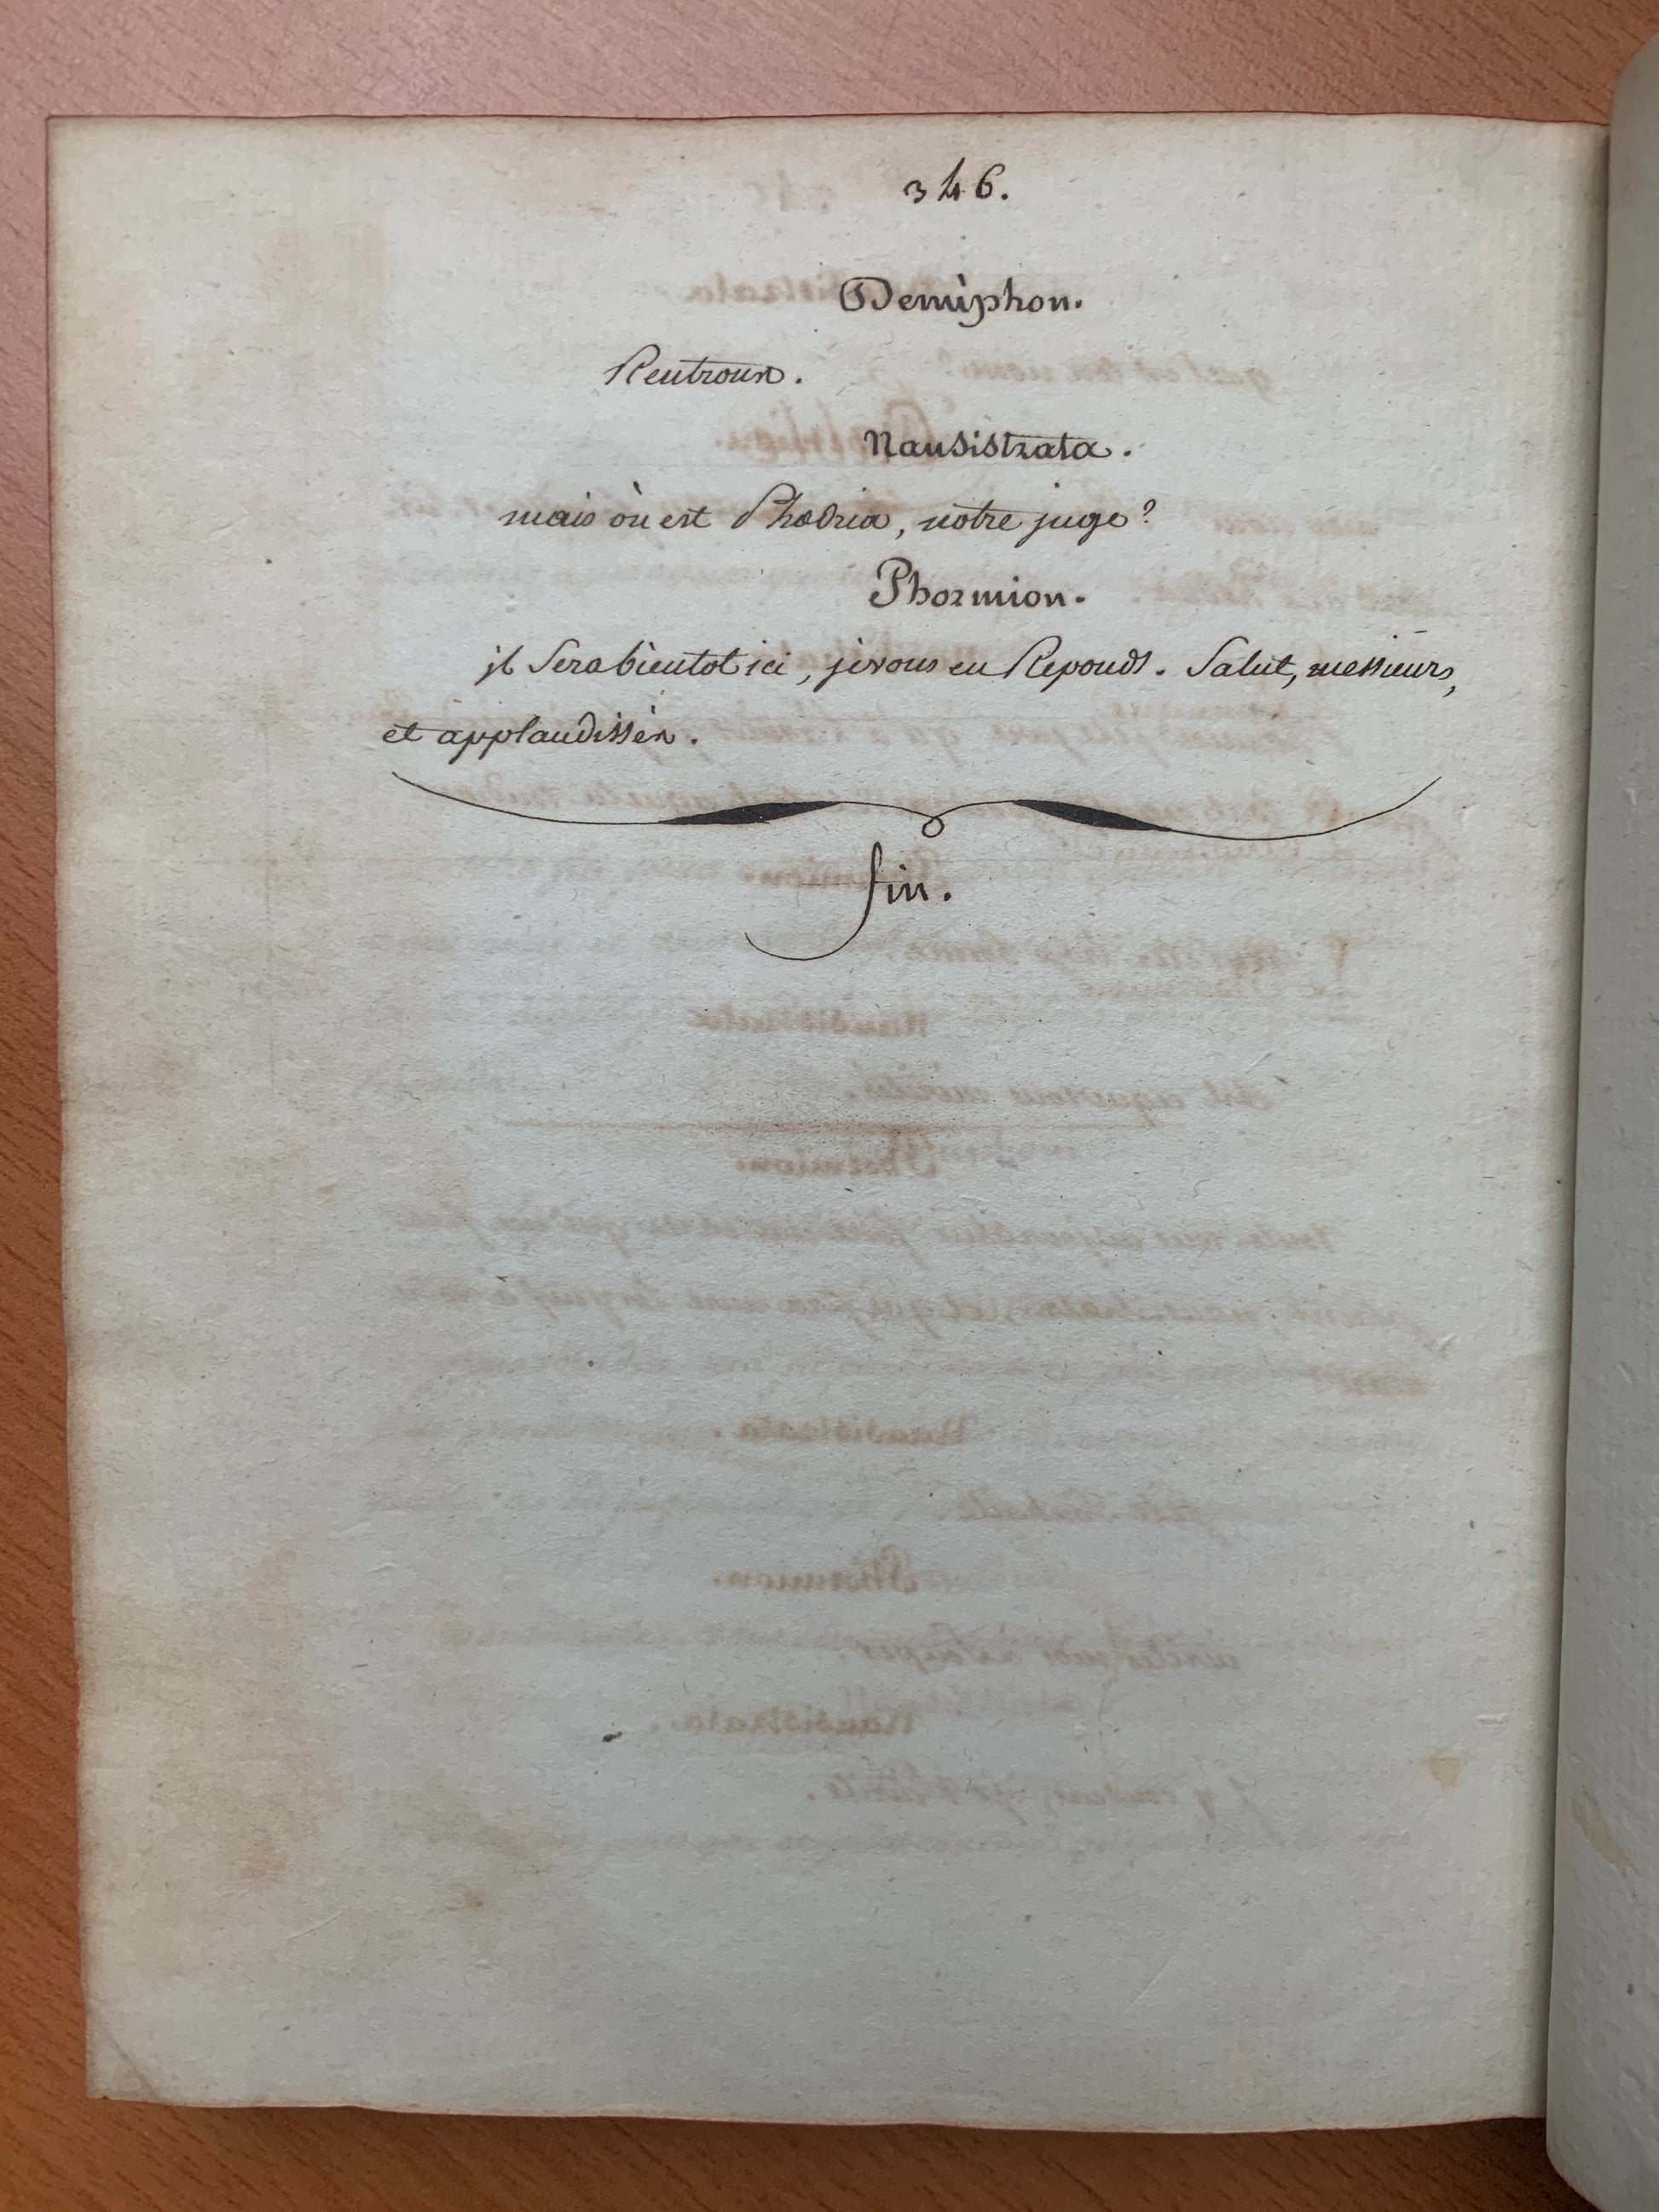 346.
Demiphon.
Rentrons.
Nausistrata.
mais ou est Phœdria, notre juge?
Phormion.
il Sera bientot ici, je vous en Reponds. Salut, messieurs,
et applaudissèz.
fin.